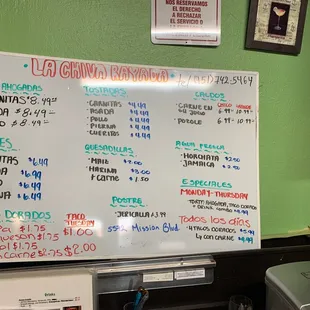 NOS RESERVAMOS
EL DERECHO
A RECHAZAR
EL SERVICIO
LA CHIVA RAYADA
Tel (951) 742-5964
AHOGADAS
NITAS $8.49
DA $8.49
$8.49
TOSTADAS
-CARNITAS $4.49
-ASADA $4.49
-POLLO $4.49
-PIERNA $4.49
-CUERITOS $4.49
CALDOS
CHICO GRANDE
-CARNE EN
SU JUGO 6.99-10.99
-POZOLE 6.99-10.99
ES
ITAS $6.49
A $6.49
$6.49
$6.49
QUESADILLAS
-MAIZ $3.00
-HARINA $3.00
+CARNE $1.50
AGUA FRESCA
-HORCHATA $2.50
-JAMAICA $2.50
POSTRE
-JERICALLA $3.99
ESPECIALES
MONDAY-THURSDAY
TORTA AHOGADA, TACO DORADO
+ DRINK
Todos los dias
-4 TACOS DORADOS $5.99
4 CON CARNE $9.99
DORADOS
$1.75
$1.75
$1.75
$2.00
TACO
TUESDAY
$1.00
5592 Mission Blvd